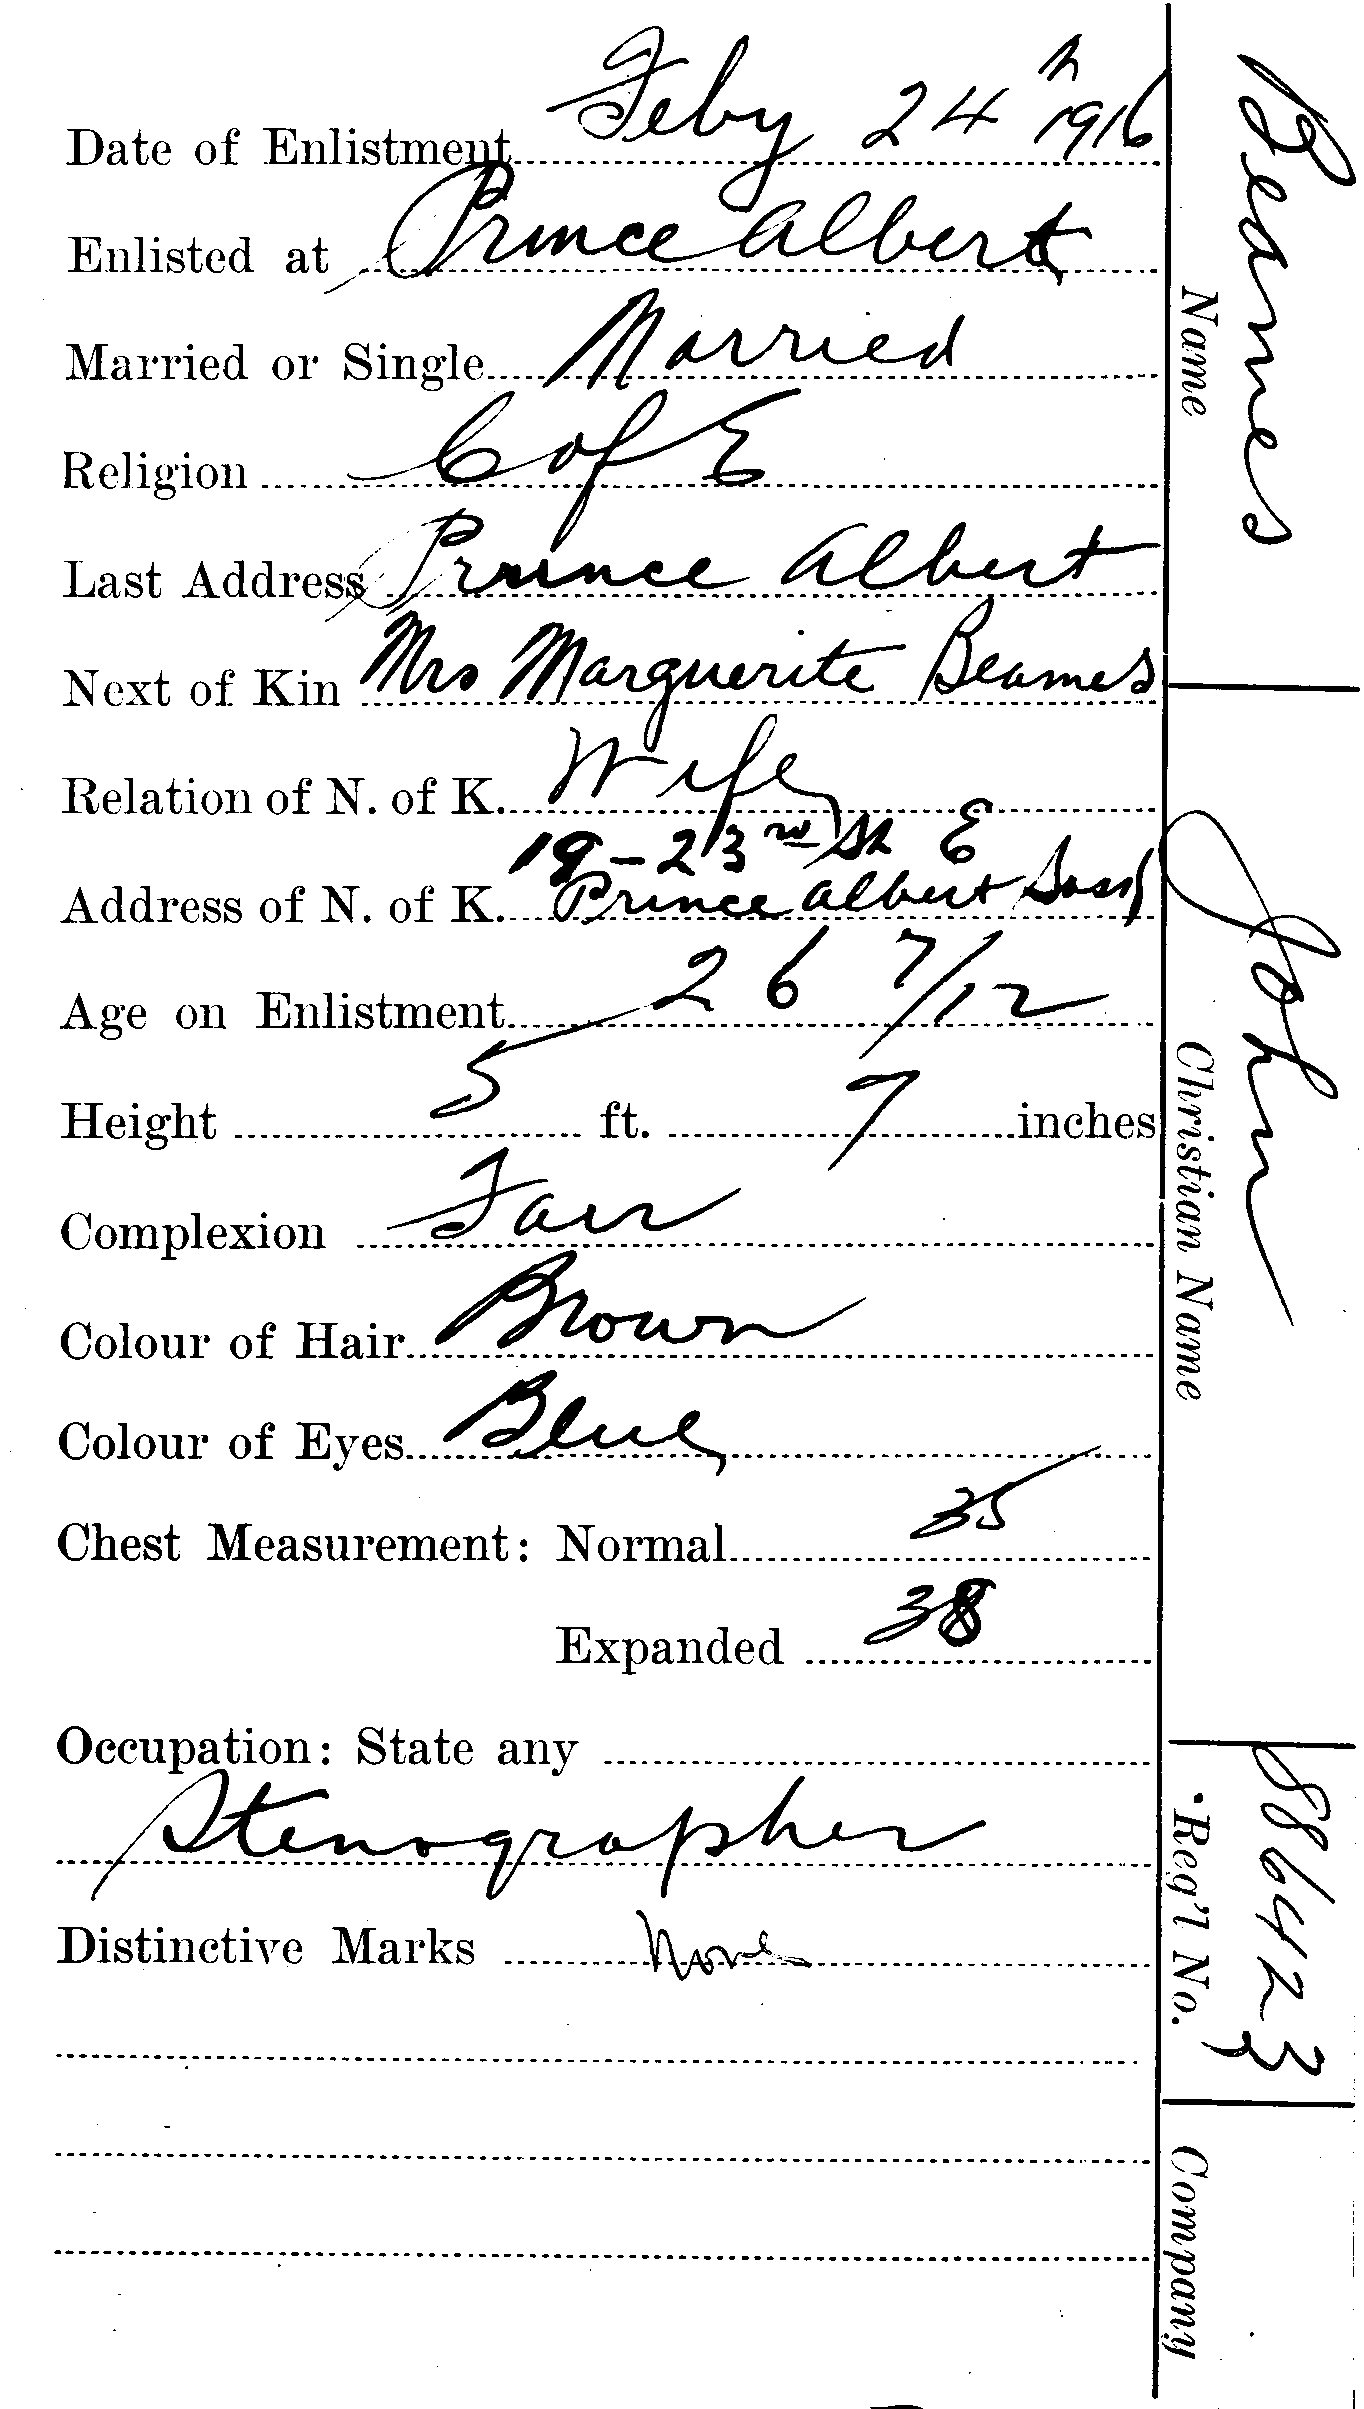 Date of Enlistment Feby 24th 1916
Enlisted at Prince Albert
Married or Single Married
Religion C of E
Last Address Prince Albert
Next of Kin Mrs Marguerite Beames
Relation of N. of K. Wife
19-23rd St E
Address of N. of K. Prince Albert Sask
Age on Enlistment 26 7/12
Height 5 ft. 7 inches
Complexion Fair
Colour of Hair Brown
Colour of Eyes Blue
Chest Measurement: Normal 35
Expanded 38
Occupation: State any
Stenographer
Distinctive Marks None
Beames
Name
John
Christian Name
886423
Reg'l No.
Company